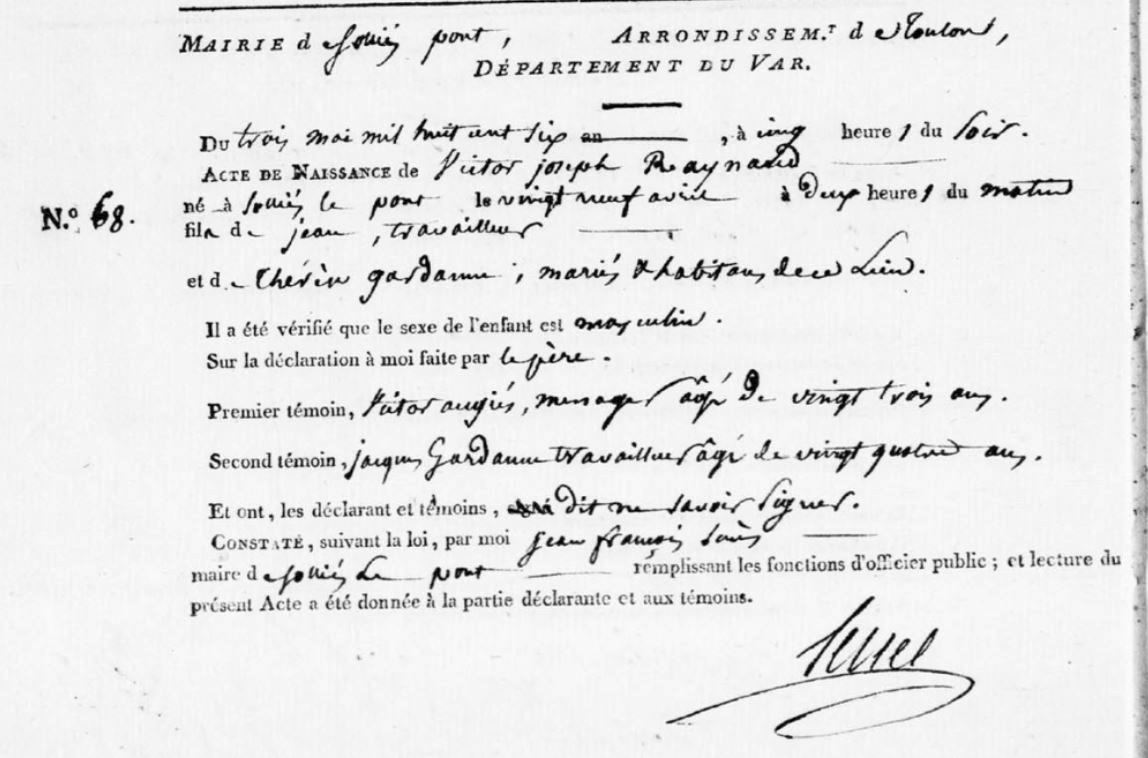 MAIRIE de Solliés pont, ARRONDISSEM.T de Toulon,
DÉPARTEMENT DU VAR.
Du trois mai mil huit cent six an , à cinq heures du soir.
ACTE DE NAISSANCE de Victor joseph Raynaud
né à Solliés le pont le vingt neuf avril à Deux heures du matin
N.o 68.
fils de jean, travailleur
et de thérèse gardanne, mariés & habitans de ce Lieu.
Il a été vérifié que le sexe de l'enfant est masculin.
Sur la déclaration à moi faite par le père.
Premier témoin, Victor augiés, menager âgé De vingt trois ans.
Second témoin, jacques Gardanne travailleur âgé de vingt quatre ans.
Et ont, les déclarant et témoins, dit ne savoir signer.
CONSTATÉ, suivant la loi, par moi jean françois
maire de Solliés Le pont remplissant les fonctions d'officier public ; et lecture du
présent Acte a été donnée à la partie déclarante et aux témoins.